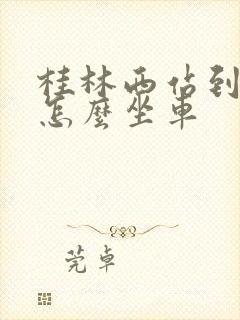 桂林西站到
怎麼坐車
莞卓